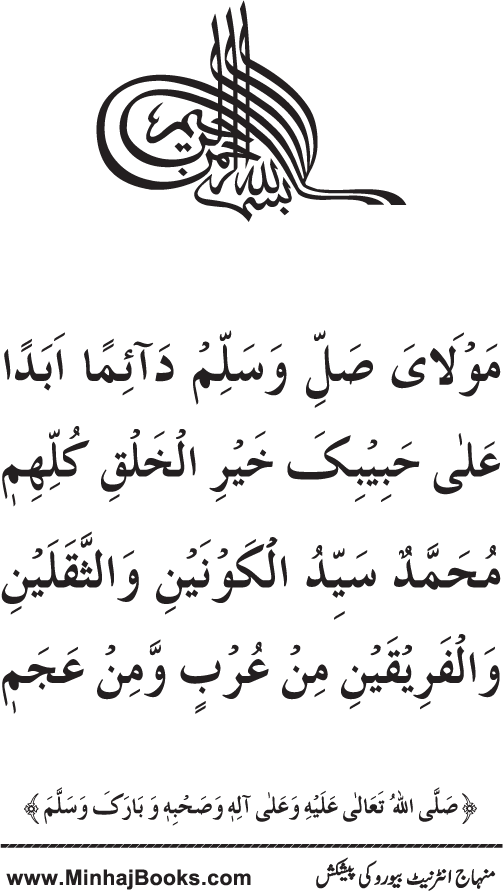 بسم الله الرحمن الرحيم
مَوْلَايَ صَلِّ وَسَلِّمْ دَآئِمًا اَبَدًا
عَلٰى حَبِيْبِکَ خَيْرِ الْخَلْقِ کُلِّهِمٖ
مُحَمَّدٌ سَيِّدُ الْکَوْنَيْنِ وَالثَّقَلَيْنِ
وَالْفَرِيْقَيْنِ مِنْ عُرْبٍ وَّمِنْ عَجَمٖ
﴿ صَلَّى اللهُ تَعَالٰى عَلَيْهِ وَعَلٰى آلِهٖ وَصَحْبِهٖ وَ بَارَکَ وَسَلَّمَ ﴾
منہاج انٹرنیٹ بیورو کی پیشکش
www.MinhajBooks.com